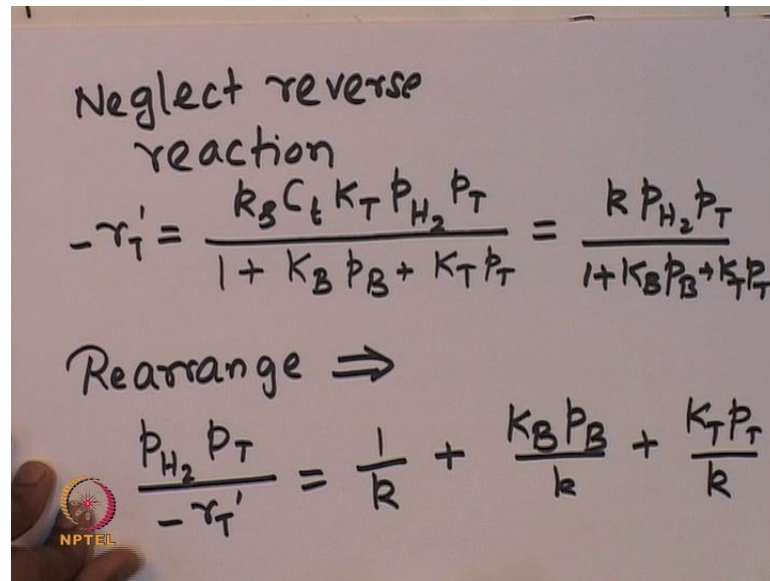 Neglect reverse
reaction
-r_T' = k_s C_t K_T p_H₂ p_T / (1 + K_B p_B + K_T p_T) = k p_H₂ p_T / (1 + K_B p_B + K_T p_T)
Rearrange ⇒
p_H₂ p_T / -r_T' = 1/k + K_B p_B / k + K_T p_T / k
NPTEL